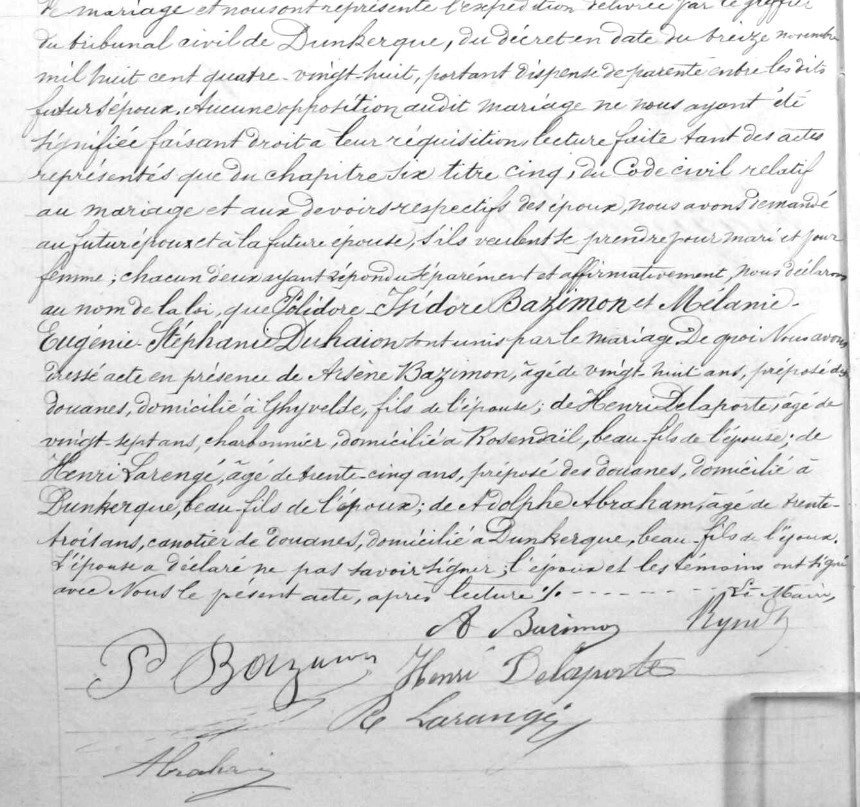 de mariage et nous ont représenté l'expédition délivrée par le greffier
du tribunal civil de Dunkerque, du décret en date du treize novembre
mil huit cent quatre-vingt-huit, portant dispense de parenté entre les dits
futurs époux. Aucune opposition audit mariage ne nous ayant été
signifiée faisant droit à leur réquisition, lecture faite tant des actes
représentés que du chapitre six titre cinq, du Code civil relatif
au mariage et aux devoirs respectifs des époux, nous avons demandé
au futur époux et à la future épouse, s'ils veulent se prendre pour mari et pour
femme; chacun d'eux ayant répondu séparément et affirmativement, nous déclarons
au nom de la loi, que Polidore-Isidore Bazimon et Mélanie-
Eugénie-Stéphanie Duhaion sont unis par le mariage. De quoi Nous avons
dressé acte en présence de Arsène Bazimon, âgé de vingt-huit ans, préposé des
douanes, domicilié à Ghyvelde, fils de l'épouse; de Henri Delaporte, âgé de
vingt-sept ans, charbonnier, domicilié à Rosendaël, beau-fils de l'épouse; de
Henri Larengé, âgé de trente-cinq ans, préposé des douanes, domicilié à
Dunkerque, beau-fils de l'époux; de Adolphe Abraham, âgé de trente-
trois ans, canotier de douanes, domicilié à Dunkerque, beau-fils de l'époux.
L'épouse a déclaré ne pas savoir signer; l'époux et les témoins ont signé
avec Nous le présent acte, après lecture ./. - - - - - - - Le Maire,
A Bazimon
P Bazimon Henri Delaporte
Larangé
Abraham